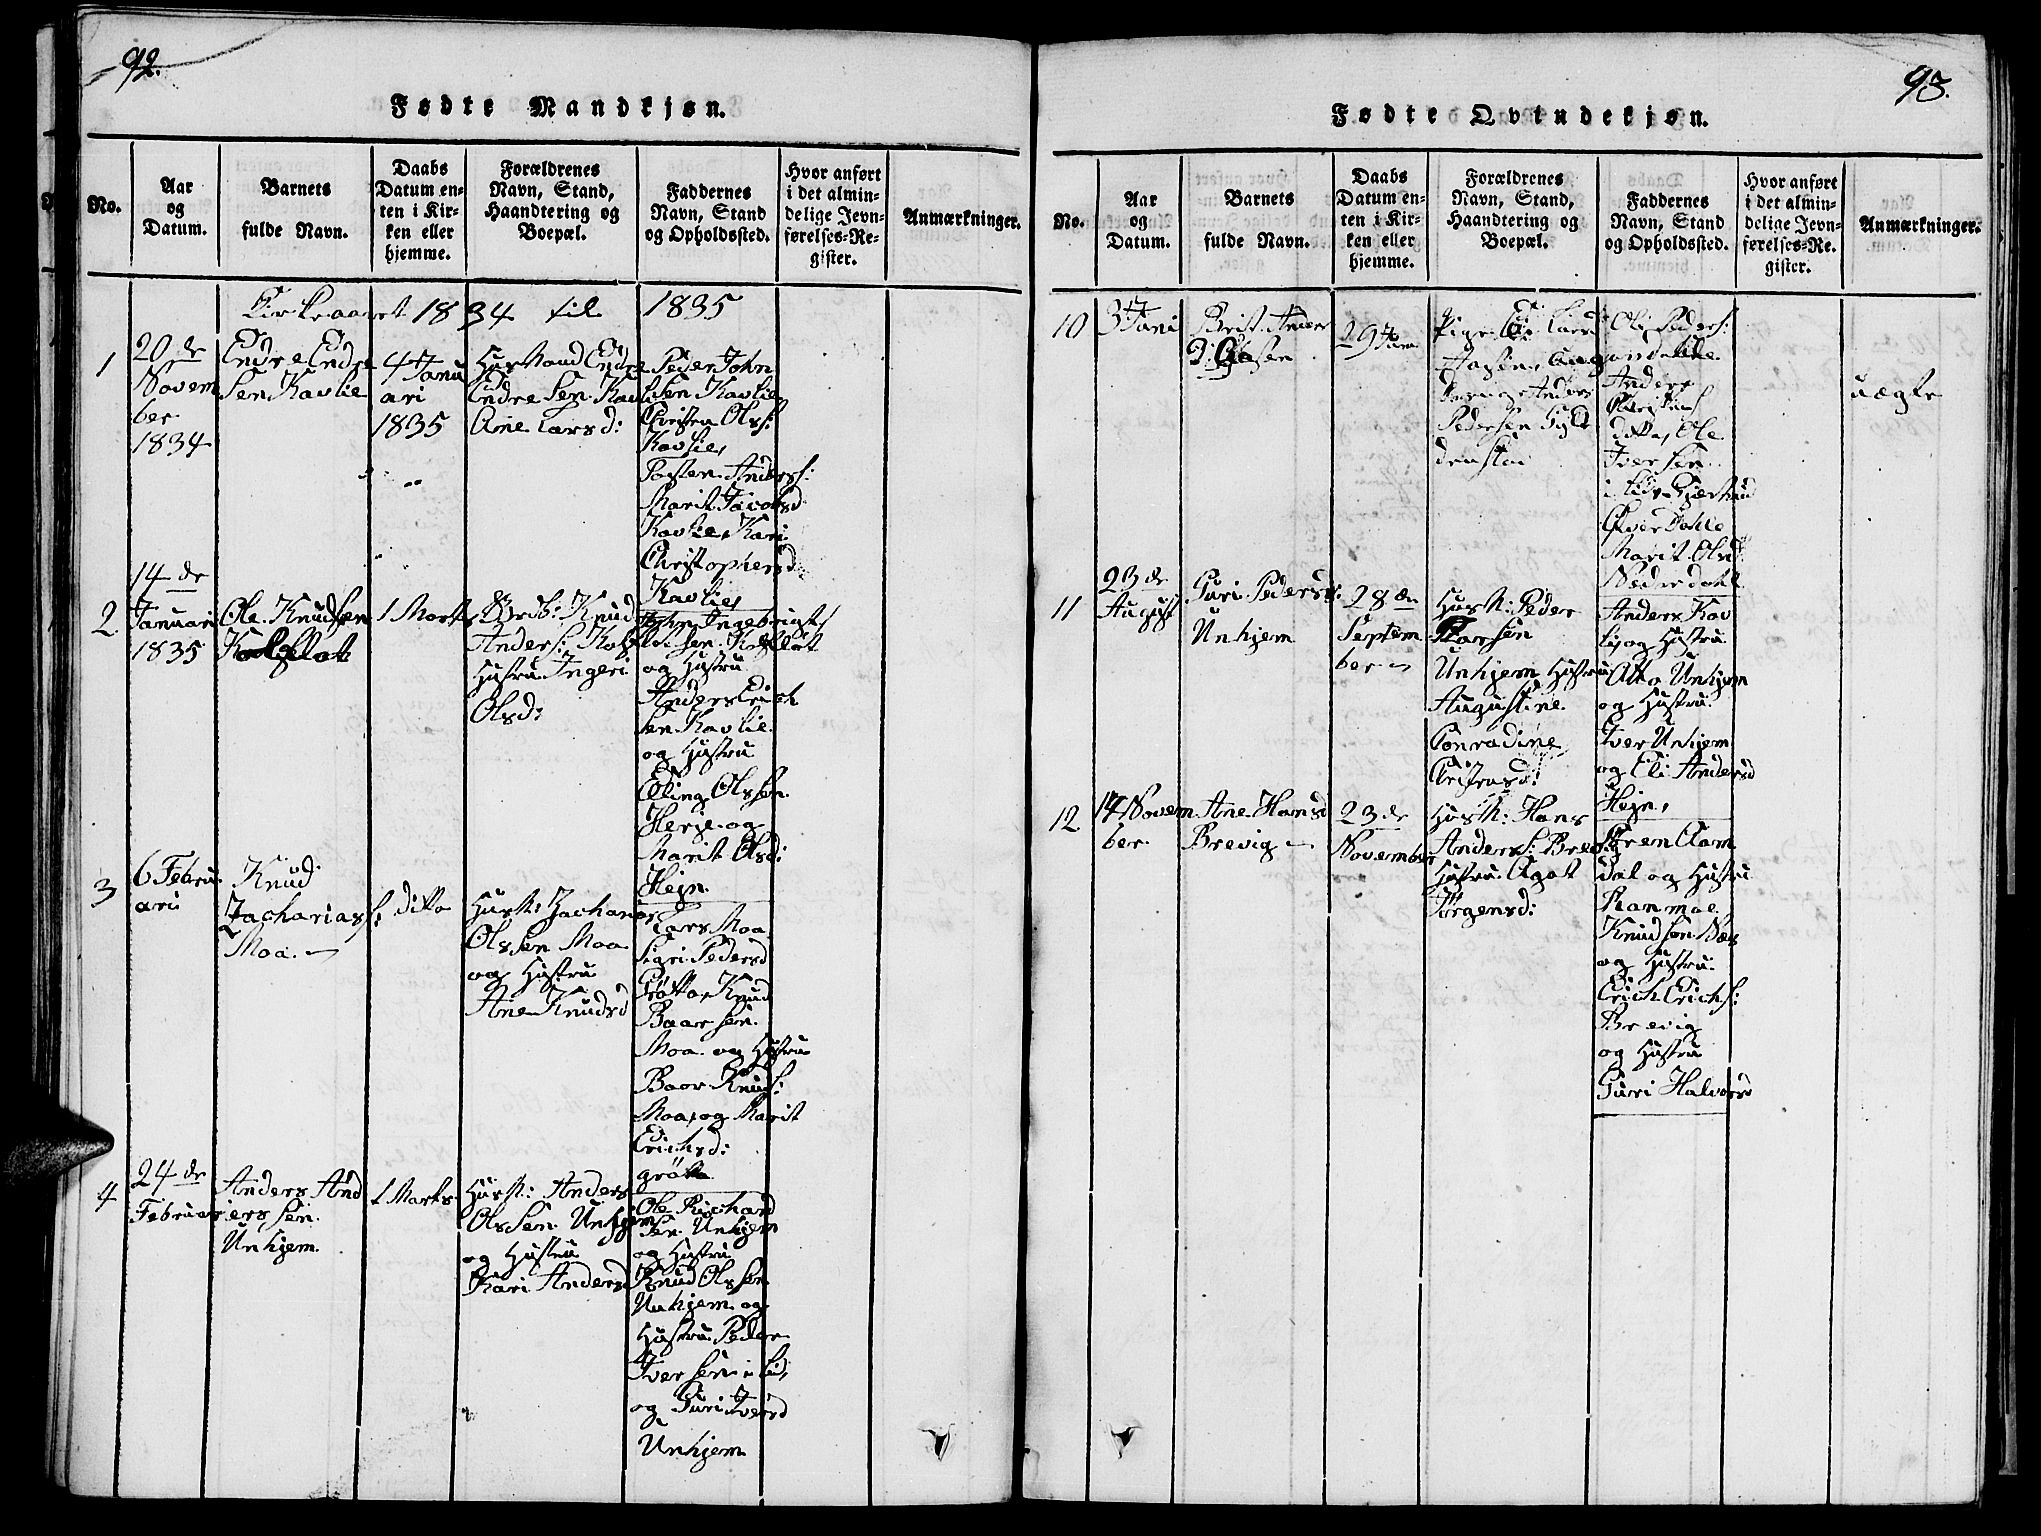 92.
Fødte Mandkjøn.
No.
Aar
og
Datum.
Barnets
fulde Navn.
Daabs
Datum en-
ten i Kir-
ken eller
hjemme.
Forældrenes
Navn, Stand,
Haandtering og
Boepæl.
Faddernes
Navn, Stand
og Opholdssted.
Hvor anført
i det almin-
delige Jevn-
førelses-Re-
gister.
Anmærkninger.
Kirkeaaret 1834 til 1835
1
20 de
Novem
ber
1834
Endre Endre
Sen Kavlie
4 Janu
ari
1835
Husmand Endre
Endre Sen Kavli
Ane Larsd:
Peder John
Sen Kavlie
Christen Olss:
Kavlie,
Anders:
Marit Jacobsd
Kavlie, Kari
Christophersd
Kavlie,
2
14 de
Januari
1835
Ole Knudsen
Kolflot
1 Marts
Knud
Anders: Kolflot
Hustru Ingeri
Olsd:
John Ingebrigt
sen Kolflot
og Hustru
Anders Erich
sen Kavlie
og Hustru
Elling Olssen
Herje og
Marit Olsd:
Hejn.
3
6 Febru
ari
Knud
Zacharias:
Moa.
ditto
Husm: Zacharias
Olssen Moa
og Hustru
Ane Knudsd
Lars Moa
Sigri Pedersd
Grøtta, Knud
Baarsen
Moa og Hustru
Baar Knuds:
Moa, og Marit
Erichsd:
grøtta
4
24 de
Februar
Anders And
ersSen
Unhjem.
1 Marts
Husm: Anders
Olssen Unhjem
og Hustru
Kari Andersd
Ole Richard
Sen Unhjem
og Hustru
Knud Olssen
Unhjem og
Hustru Peder
Iversen i Lid,
og Guri Iversd
Unhjem
93.
Fødte Qvindekjøn.
No.
Aar
og
Datum.
Barnets
fulde Navn.
Daabs
Datum en-
ten i Kir-
ken eller
hjemme.
Forældrenes
Navn, Stand,
Haandtering og
Boepæl.
Faddernes
Navn, Stand
og Opholdssted.
Hvor anført
i det almin-
delige Jevn-
førelses-Re-
gister.
Anmærkninger.
10
3 Juni
Brit Anders
D: Aasen
29 Juni
Pige
Aasen, ung
Anders
Pedersen
Ole Peders:
Anders
ditto, Ole
Iversen
i Lid,
Øver Dahle
Marit Olsd
Nedredahl
uægte
11
23 de
August
Guri Pedersd:
Unhjem
28 de
Septem
ber
Husm: Peder
Larsen
Unhjem Hustru
Augustine
Conradine
Christensd:
Anders Kav
li og Hustru
Otto Unhjem
og Hustru
Iver Unhjem
og Eli Andersd
Hejn,
12
14 Novem
ber
Ane Hansd
Brevig
23 de
November
Husm: Hans
Anders: Brevig
Hustru Agot
Jørgensd:
Aam
dal og Hustru
Knudsen Næs
og Hustru
Erich Erichs:
Brevig
og Hustru
Guri Halvorsd